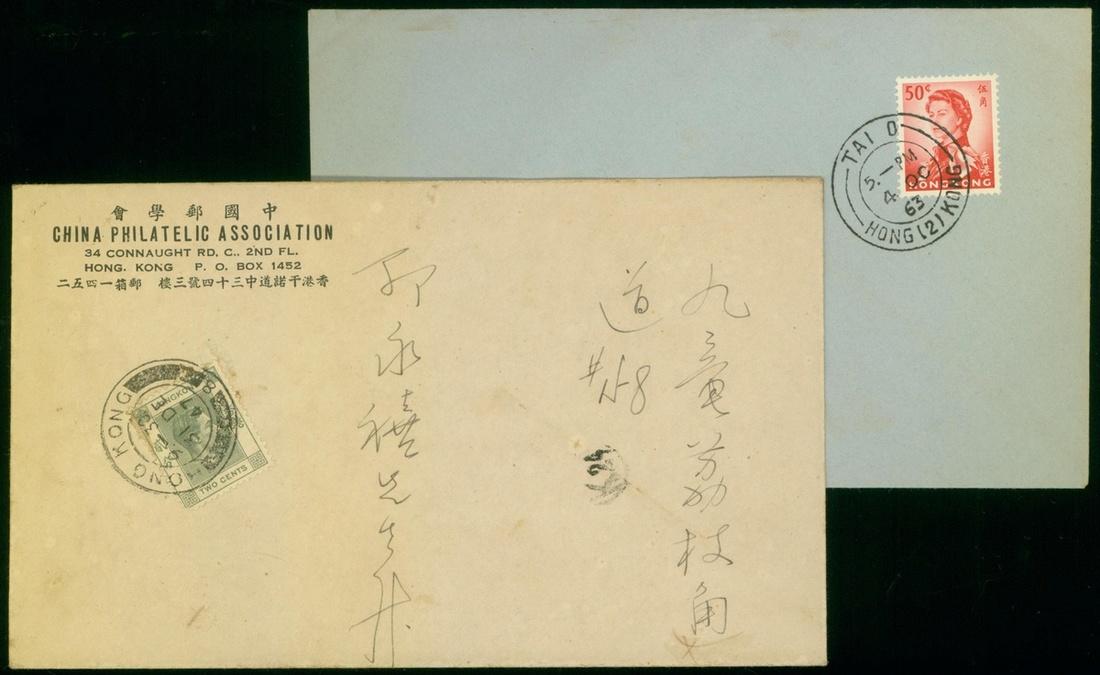 會學郵國中
CHINA PHILATELIC ASSOCIATION
34 CONNAUGHT RD. C., 2ND FL.
HONG. KONG P. O. BOX 1452
二五四一箱郵 樓三號四十三中道諾干港香
九龍荔枝角
道
永禧先生升
HONG KONG
31 D
47
TWO CENTS
24
50¢
伍角
香港
HONG KONG
TAI O
5 - PM
4 OC
63
HONG (2) KONG